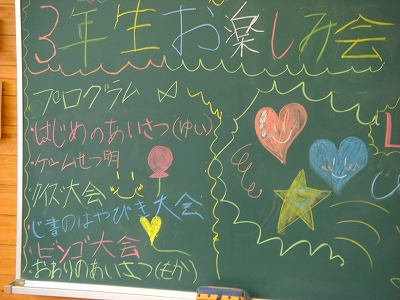 3年生お楽しみ会
プログラム
・はじめのあいさつ(ゆい)
・ゲームせつ明
・クイズ大会
・じ書のはやびき大会
・ビンゴ大会
・おわりのあいさつ(もか)